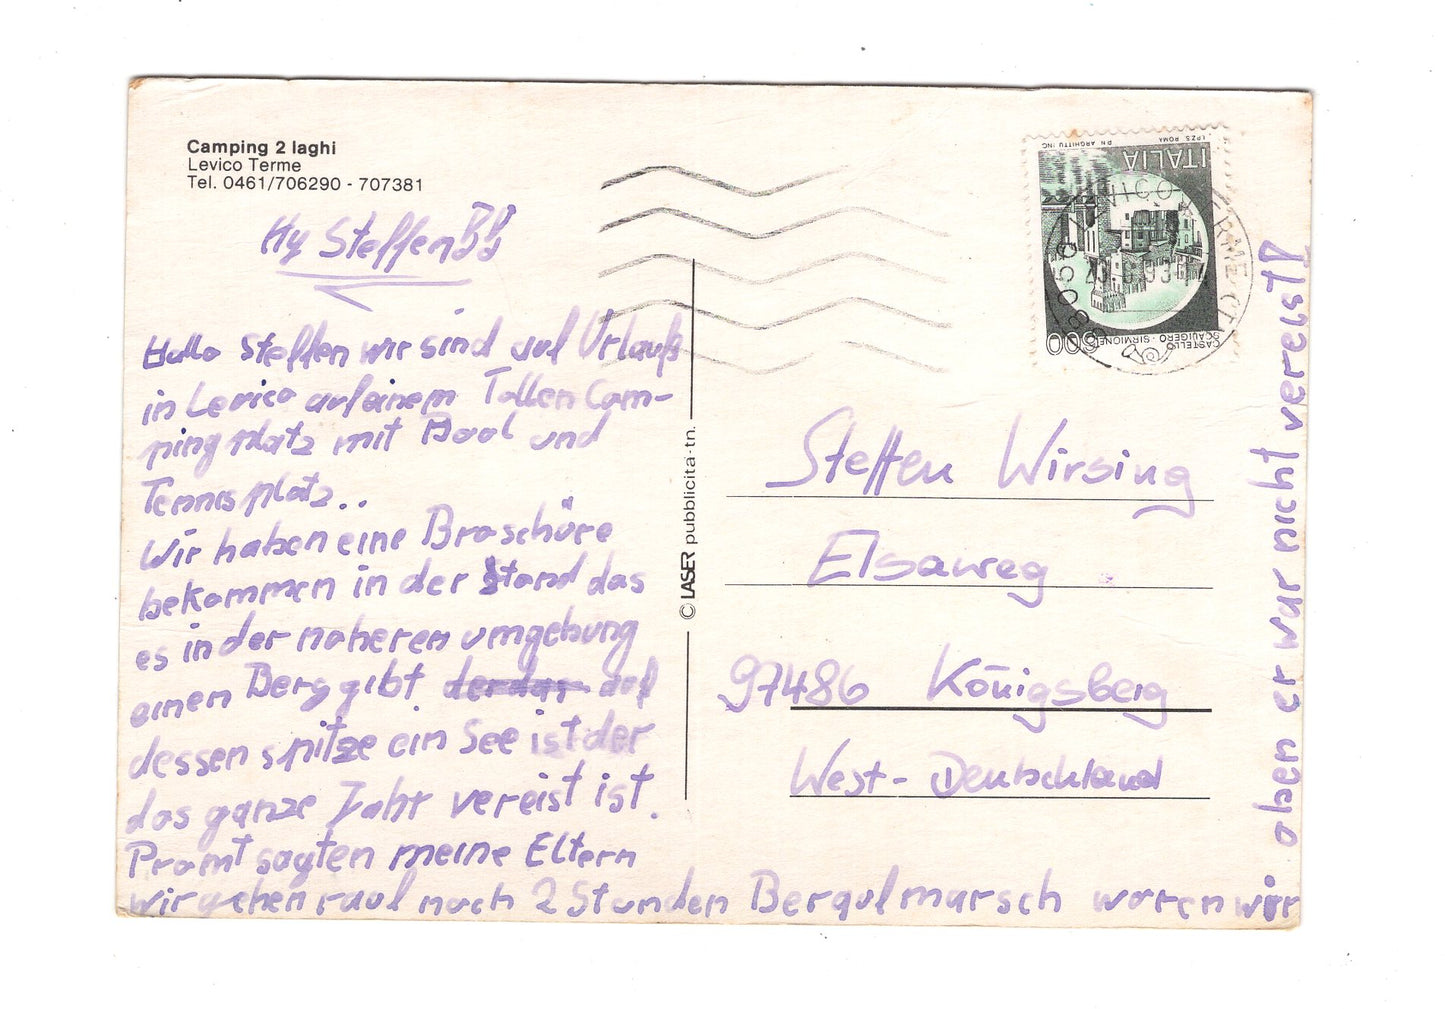 Camping 2 laghi
Levico Terme
Tel. 0461/706290 - 707381
Hy Steffen!!
Hallo Steffen wir sind auf Urlauß
in Levico auf einem Tollen Cam-
ping platz mit Pool und
Tennisplatz..
Wir haben eine Broschüre
bekommen in der Stand das
es in der naheren umgebung
einen Berg gibt der dar auf
dessen spitze ein See ist der
das ganze Jahr vereist ist.
Promt sagten meine Eltern
wir gehen rauf nach 2 Stunden Bergaufmarsch waren wir
oben er war nicht vereist!!
© LASER pubblicità-tn.
I.P.Z.S. ROMA
ITALIA
CASTELLO
SCALIGERO - SIRMIONE
600
38056 LEVICO TERME
Steffen Wirsing
Elsaweg
97486 Königsberg
West-Deutschland